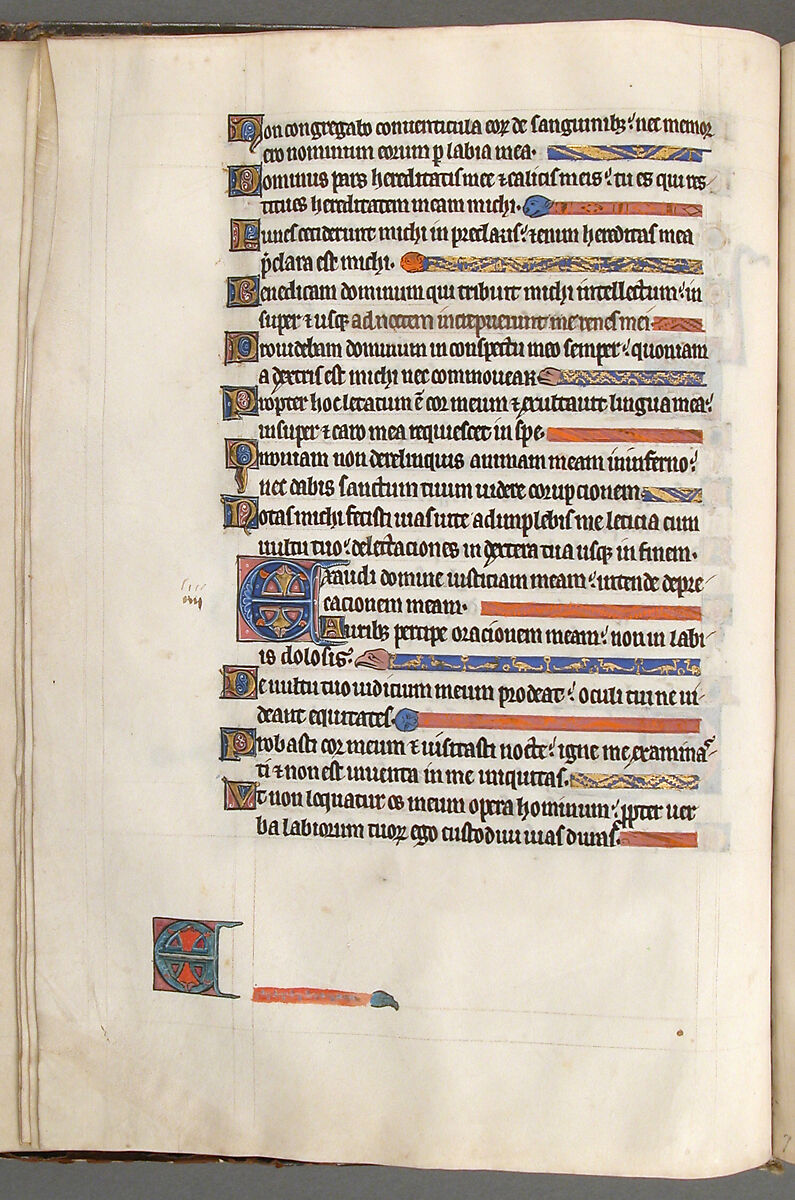 Non congregabo conventicula eoꝝ de sanguinibꝫ: nec memor
ero nominum eorum p labia mea.
Dominus pars hereditatis mee ⁊ calicis mei s: tu es qui res-
titues hereditatem meam michi.
Funes ceciderunt michi in preclaris: ⁊enim hereditas mea
p̄clara est michi.
Benedicam dominum qui tribuit michi intellectum: in
super ⁊ usqꝫ ad noctem increpuerunt me renes mei.
Providebam dominum in conspectu meo semper: quoniam
a dextris est michi nec commovear.
Propter hoc letatum ē cor meum ⁊ exultavit lingua mea:
insuper ⁊ caro mea requiescet in spe.
Quoniam non derelinquis animam meam in inferno:
nec dabis sanctum tuum videre corupcionem.
Notas michi fecisti vias vite adimplebis me leticia cum
vultu tuo: delectaciones in dextera tua usqꝫ in finem.
Exaudi domine iusticiam meam: intende depre-
cacionem meam.
Auribꝫ percipe oracionem meam: non in labi-
is dolosis.
De vultu tuo iudicium meum prodeat: oculi tui ne vi-
deant equitates.
Probasti cor meum ⁊ visitasti nocte: igne me examinas-
ti ⁊ non est inventa in me iniquitas.
Ut non loquatur os meum opera hominum: ꝓpter ver
ba labiorum tuoꝝ ego custodivi vias duras.
E